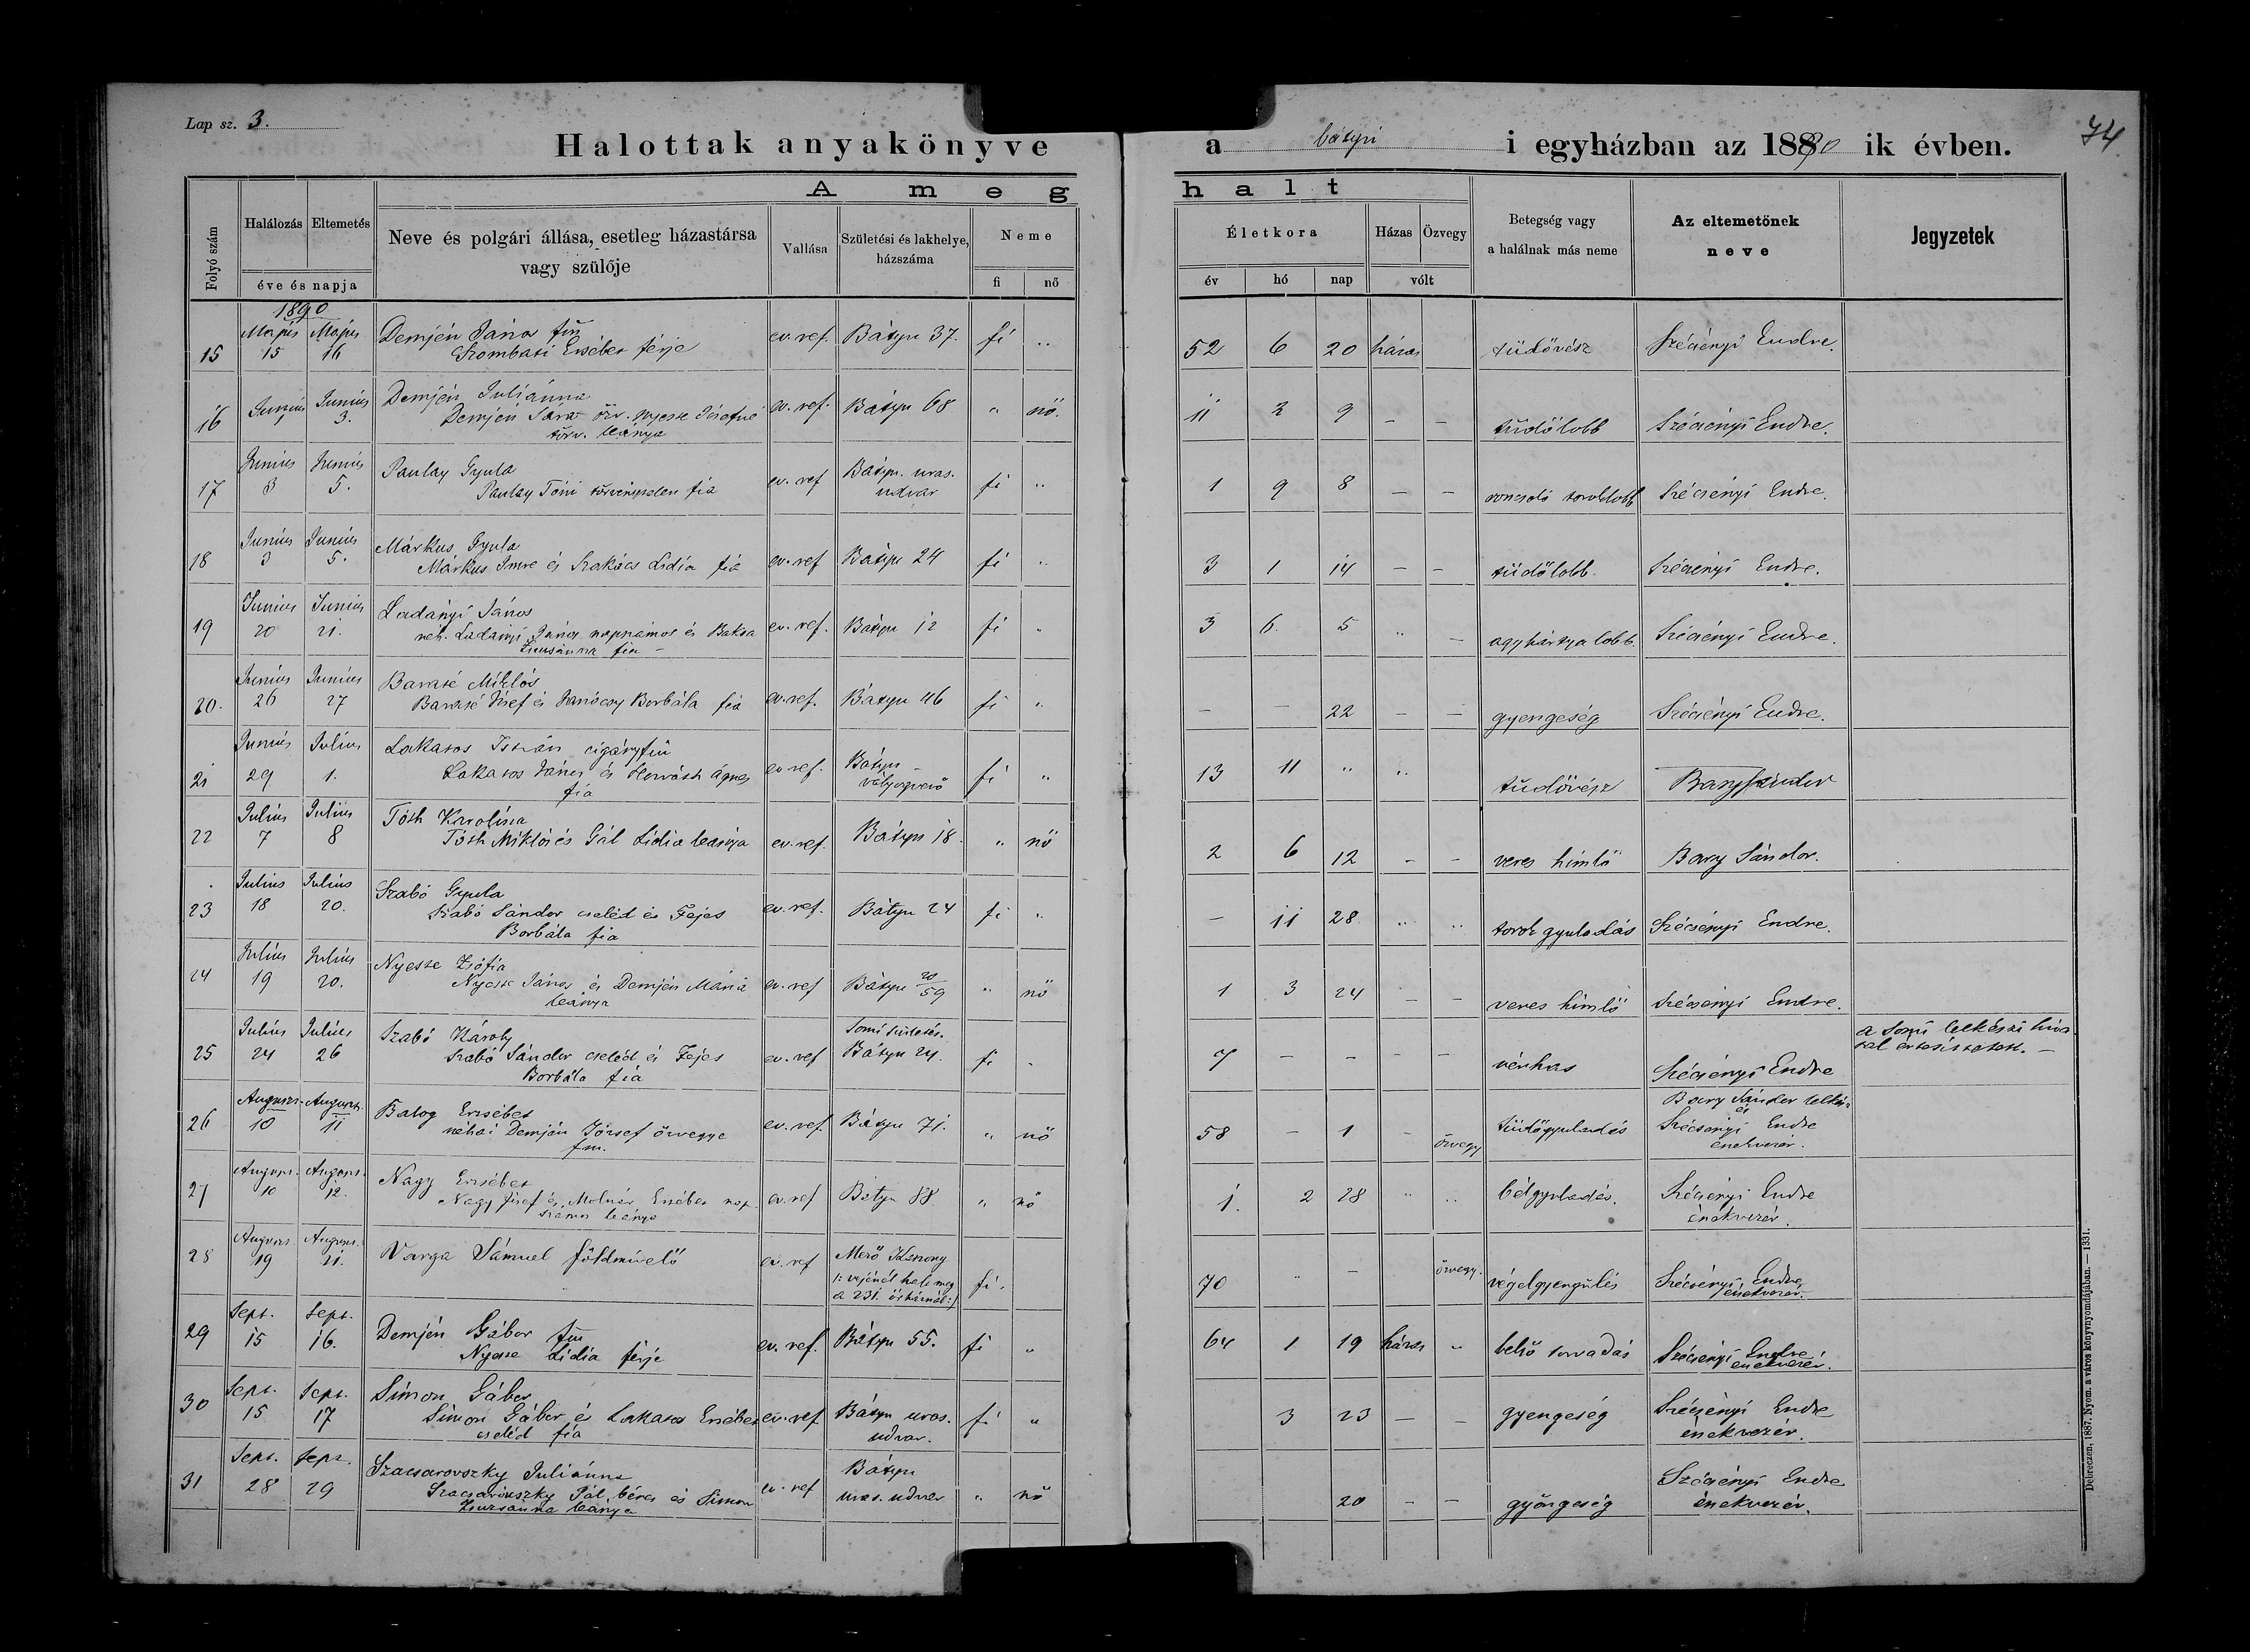 Lap sz. 3.
74
Halottak anyakönyve a bátyui egyházban az 1890 ik évben.
A meghalt
Folyó szám
Halálozás Eltemetés
éve és napja
Neve és polgári állása, esetleg házastársa
vagy szülője
Vallása
Születési és lakhelye,
házszáma
Neme
fi nő
Életkora
év hó nap
Házas Özvegy
vólt
Betegség vagy
a halálnak más neme
Az eltemetőnek
neve
Jegyzetek
1890
15 Majus 15 Majus 16 Demjén János fm ev. ref. Bátyu 37. fi " 52 6 20 házas tüdővész Szécsényi Endre.
Szombati Erzsébet férje
16 Junius Junius 3. Demjén Juliánna ev. ref. Bátyu 68 " nő. 11 2 9 — — tüdőlobb Szécsényi Endre.
Demjén Sára özv. Nyeste Józsefné
törv. leánya
17 Junius 3 Junius 5. Paulay Gyula ev. ref Bátyu. uras. udvar fi " 1 9 8 — — roncsoló toroklobb Szécsényi Endre.
Paulay Tóni törvénytelen fia
18 Junius 3 Junius 5. Márkus Gyula ev. ref Bátyu 24 fi " 3 1 14 — — tüdőlobb. Szécsényi Endre.
Márkus Imre és Szakács Lidia fia
19 Junius 20 Junius 21. Ladányi János ev. ref. Bátyu 12 fi " 3 6. 5 " — agyhártyalobb. Szécsényi Endre.
néh. Ladányi János napszámos és Baksa
Zsuzsánna fia —
20. Junius 26 Junius 27 Miklós ev. ref. Bátyu 46 fi " — — 22 — — gyengeség Szécsényi Endre.
József és Borbála fia
21 Junius 29 Julius 1. Lakatos István cigányfiu ev. ref. Bátyu — vályogvető fi " 13 11 " " tüdővész Bary Sándor
Lakatos János és Horváth Ágnes
fia
22 Julius 7 Julius 8 Tóth Karolina ev. ref. Bátyu 18. " nő 2 6 12 — — veres himlő Bary Sándor.
Tóth Miklós és Gál Lidia leánya
23 Julius 18 Julius 20. Szabó Gyula ev. ref. Bátyu 24 fi " — 11 28 " " torok gyuladás Szécsényi Endre.
Szabó Sándor cseléd és Fejes
Borbála fia
24 Julius 19 Julius 20. Nyeste Zsófia ev. ref Bátyu 20/59 " nő 1 3 24 — — veres himlő Szécsényi Endre.
Nyeste János és Demjén Mária
leánya
25 Julius 24 Julius 26 Szabó Károly ev. ref Somi születés. Bátyu 24. fi . 7 — — — — vérhas Szécsényi Endre a somi lelkészi hiva-
Szabó Sándor cseléd és Fejes
tal értesíttetett. —
Borbála fia
26 August. 10 August. 11 Balog Erzsébet ev. ref. Bátyu 71. " nő 58 — 1 — özvegy tüdőgyuladás Bary Sándor lelkész
néhai Demjén József özvegye
és Szécsényi Endre
fm.
énekvezér.
27 August. 10 August. 12. Nagy Erzsébet ev. ref Bátyu 88. " nő 1. 2 28 " " bélgyuladás. Szécsényi Endre
Nagy József és Molnár Erzsébet nap-
számos leánya
énekvezér.
28 August. 19 August. 21. Varga Sámuel földmívelő ev. ref Mező Kászony fi. 70 " — özvegy. végelgyengülés Szécsényi Endre
/: vejénél halt meg
énekvezér.
a 231. őrháznál :/
29 Sept. 15 Sept. 16. Demjén Gábor fm ev. ref. Bátyu 55. fi " 64 1 19 házas " belső sorvadás Szécsényi Endre
Nyeste Lidia férje
énekvezér.
30 Sept. 15 Sept. 17 Simon Gábor ev. ref Bátyu uras. udvar. fi " 3 23 — — gyengeség Szécsényi Endre
Simon Gábor és Lakatos Erzsébet
cseléd fia
énekvezér.
31 Sept. 28 Sept. 29 Szacsarovszky Juliánna ev. ref Bátyu uras. udvar " nő 20 — — gyöngeség Szécsényi Endre
Szacsarovszky Pál béres és Simon
Zsuzsánna leánya
énekvezér.
Debreczen, 1887. Nyom. a város könyvnyomdájában. — 1331.